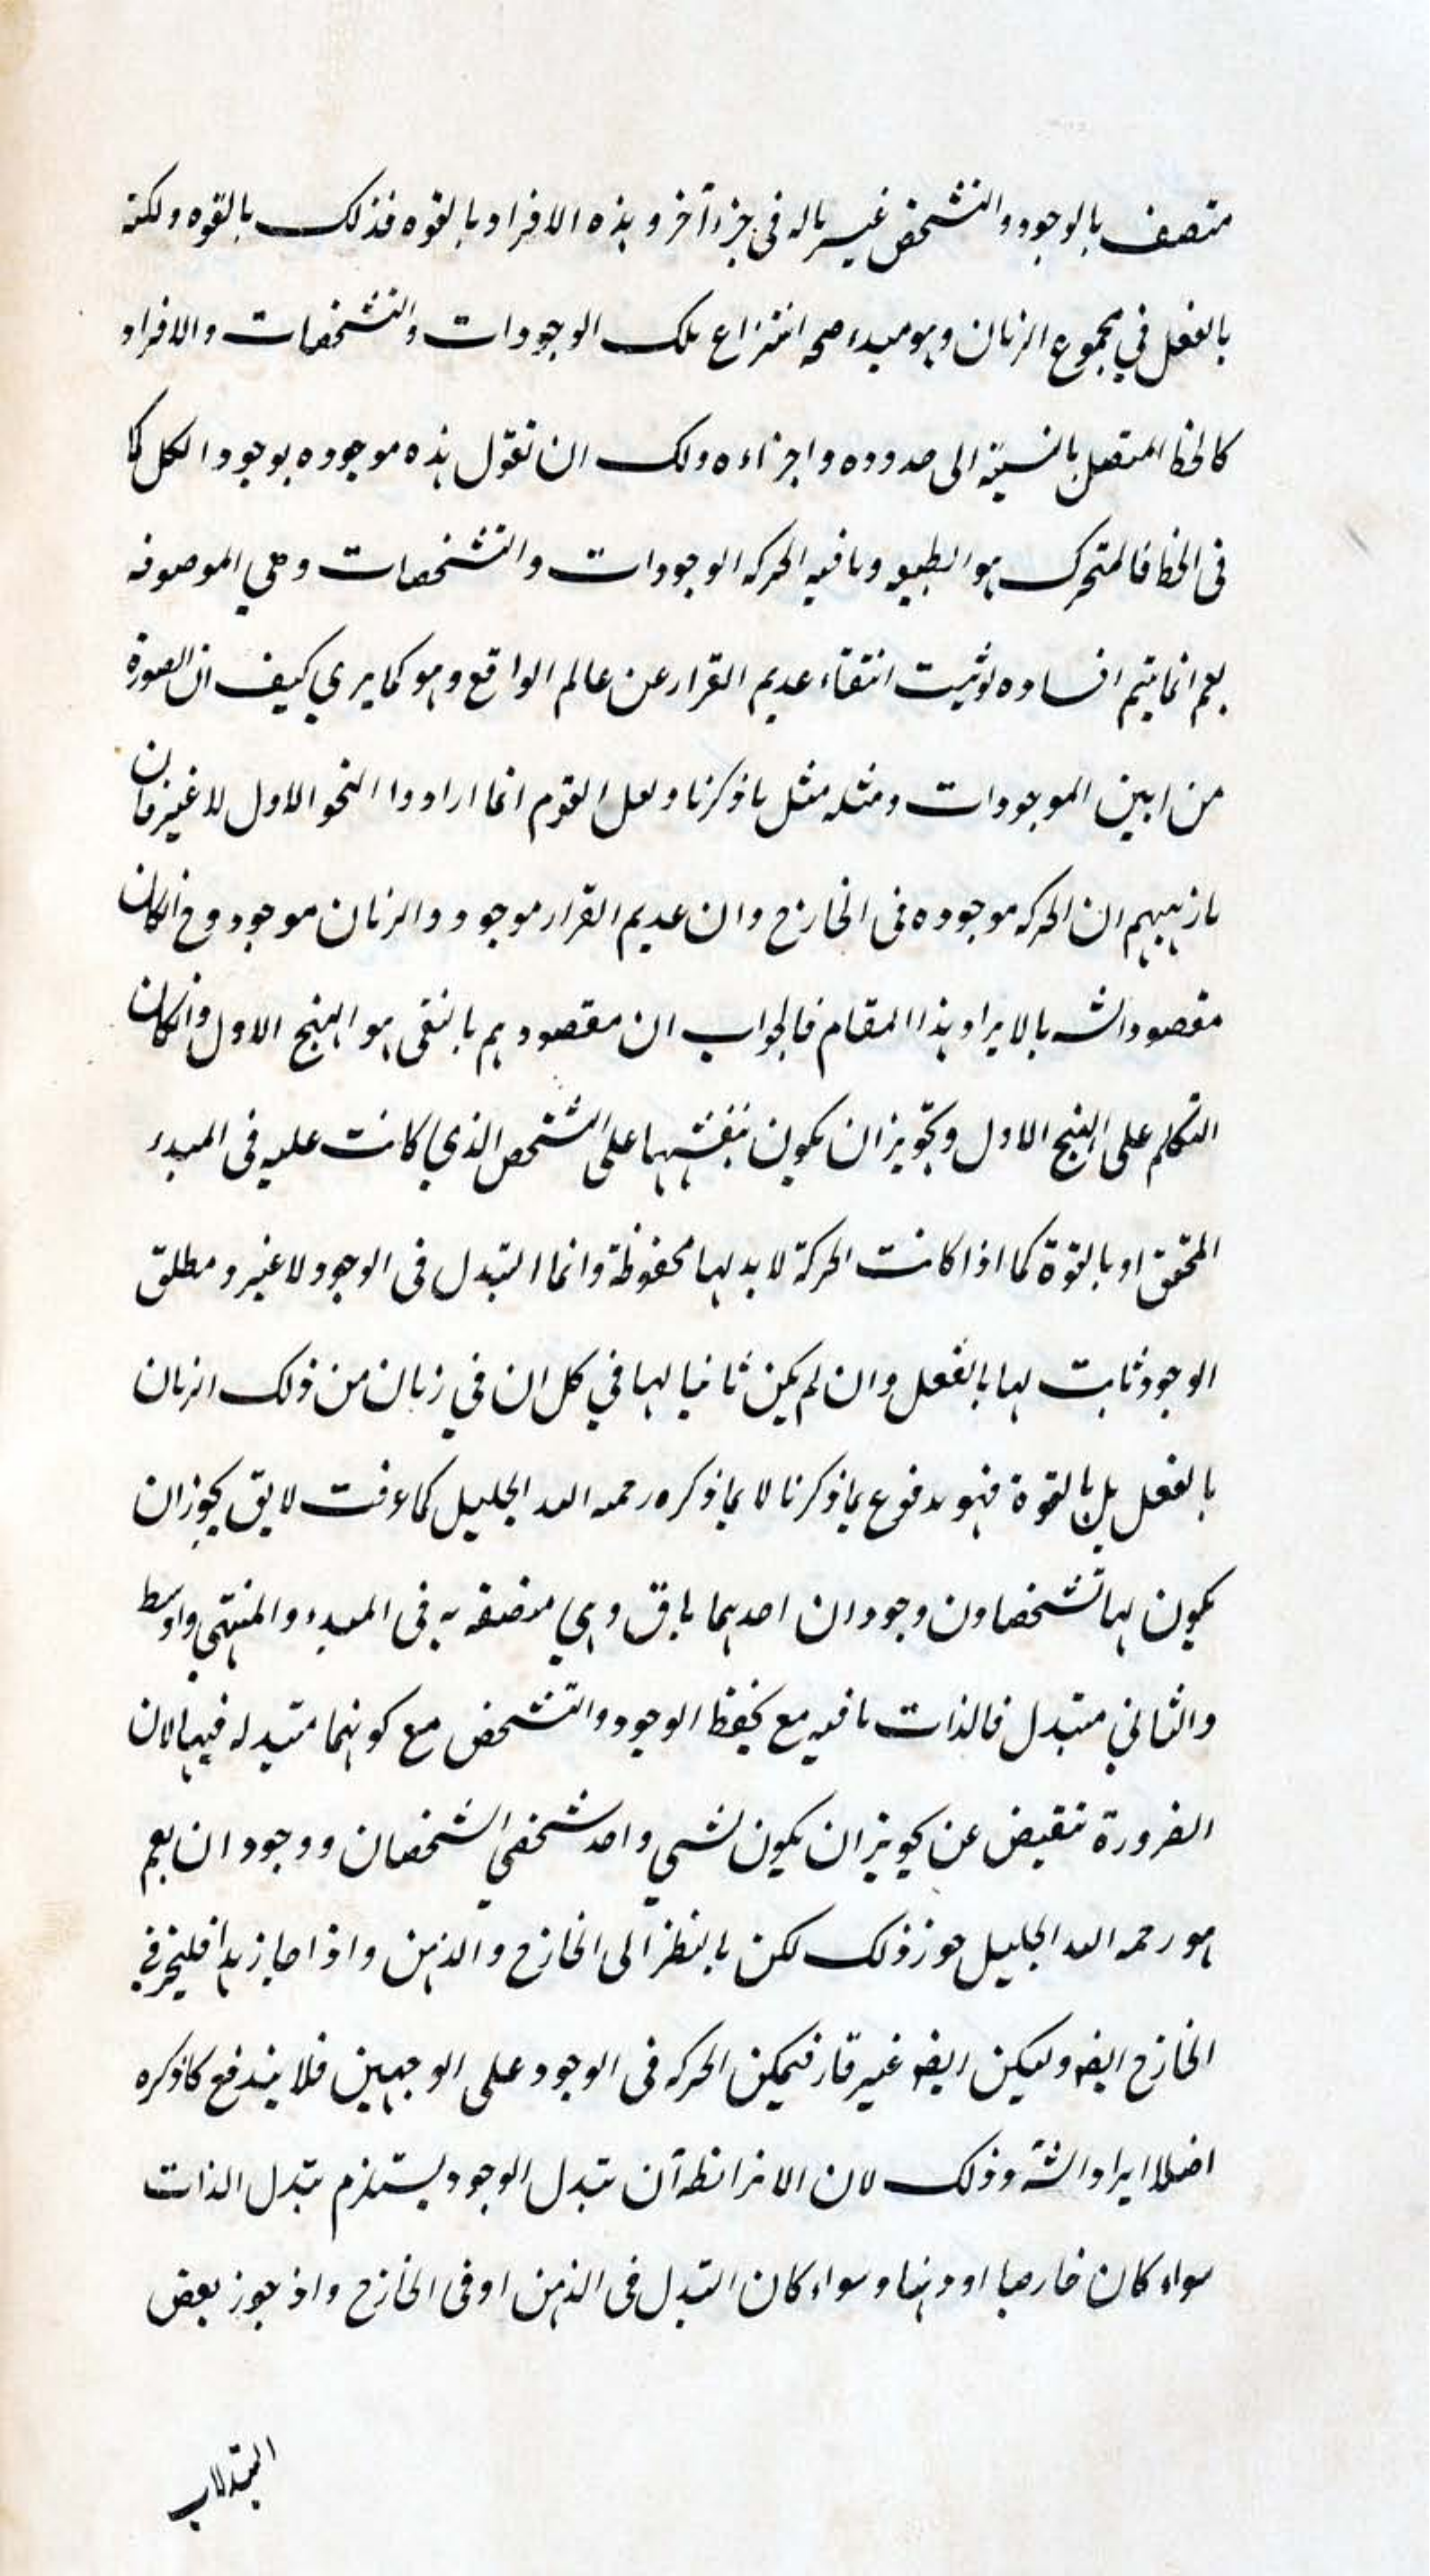 متصف بالوجود والتشخص غير ماله فى جزء آخر و هذه الافراد بالقوه فذلك بالقوه ولكنه
بالفعل في مجموع الزمان وهو مبدء صحه انتزاع تلك الوجودات والتشخصات والافراد
كالخط المتصل بالنسبة الى حدوده واجزاءه ولك ان تقول هذه موجوده بوجود الكل كما
فى الخط فالمتحرك هو الطبيعه وما فيه الحركه الوجودات والتشخصات وهي الموصوفه
نعم انما يتم افساده لو ثبت انتفاء عديم القرار عن عالم الواقع وهو كما يري كيف ان الصورة
من ابين الموجودات ومثله مثل ما ذكرنا ولعل القوم انما ارادوا النحو الاول لا غير فان
مذهبهم ان الحركه موجوده فى الخارج وان عديم القرار موجود والزمان موجود وح انكان
مقصود الشه بالايراد هذا المقام فالجواب ان مقصودهم بالنفى هو النهج الاول وانكان
التكلم على النهج الاول وتجويز ان يكون بنفسها على الشخص الذي كانت عليه فى المبدء
المحقق او بالقوة كما اذا كانت الحركة لا بد لها محفوظة وانما التبدل فى الوجود لا غير و مطلق
الوجود ثابت لها بالفعل وان لم يكن ثابتا لها في كل ان في زمان من ذلك الزمان
بالفعل بل بالقوة فهو مدفوع بما ذكرنا لا بما ذكره رحمه الله الجليل كما عرفت لا يق يجوز ان
يكون لها تشخصا ون وجودان احدهما باق وهي متصفه به فى المبدء والمنتهي واوسط
والثاني متبدل فالذات باقيه مع تحفظ الوجود والتشخص مع كونهما متبدله فيها لان
الضرورة تنقبض عن تجويز ان يكون لشي واحد شخصي تشخصان ووجودان نعم
هو رحمه الله الجليل جوز ذلك لكن بالنظر الى الخارج والذهن واذا جاز هذا فليجز في
الخارج ايضه وليكن ايضه غير قار فتمكن الحركه فى الوجود على الوجهين فلا يندفع كما ذكره
اصلا ايراد الشه وذلك لان الا ان تبدل الوجود يستلزم تبدل الذات
سواء كان خارجيا او ذهنيا وسواء كان التبدل فى الذهن او فى الخارج واذ جوز بعض